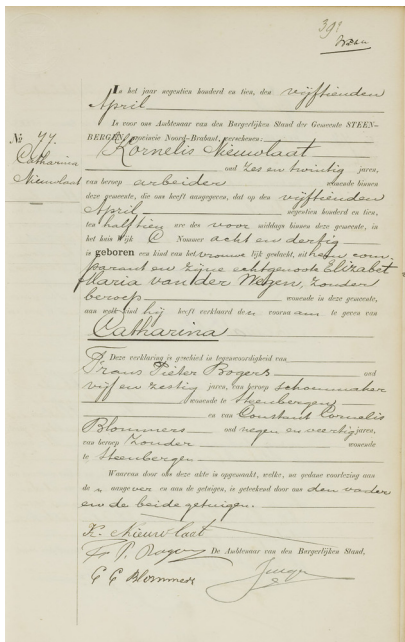 391
No 77
Catharina
Nieuwlaat
In het jaar negentien honderd en tien, den vijftienden
April
Is voor ons Ambtenaar van den Burgerlijken Stand der Gemeente STEEN-
BERGEN, provincie Noord-Brabant, verschenen:
Kornelis Nieuwlaat
oud zes en twintig jaren,
van beroep arbeider wonende binnen
deze gemeente, die ons heeft aangegeven, dat op den vijftienden
April negentien honderd en tien,
ten half tien ure des voor middags binnen deze gemeente, in
het huis wijk C Nummer acht en dertig
is geboren een kind van het vrouwelijk geslacht, uit hem com-
parant en zijne echtgenoote Elizabet
Maria van der Wegen, zonder
beroep wonende in deze gemeente,
aan welk kind hij heeft verklaard den voornaam te geven van
Catharina
Deze verklaring is geschied in tegenwoordigheid van
Frans Pieter Bogers oud
vijf en zestig jaren, van beroep schoenmaker
wonende te Steenbergen
en van Constant Cornelis
Blommers oud negen en veertig jaren,
van beroep zonder wonende
te Steenbergen
Waarvan door ons deze akte is opgemaakt, welke, na gedane voorlezing aan
de aangever en aan de getuigen, is geteekend door ons den vader
en de beide getuigen.
K. Nieuwlaat
F. P. Bogers De Ambtenaar van den Burgerlijken Stand,
C C Blommers